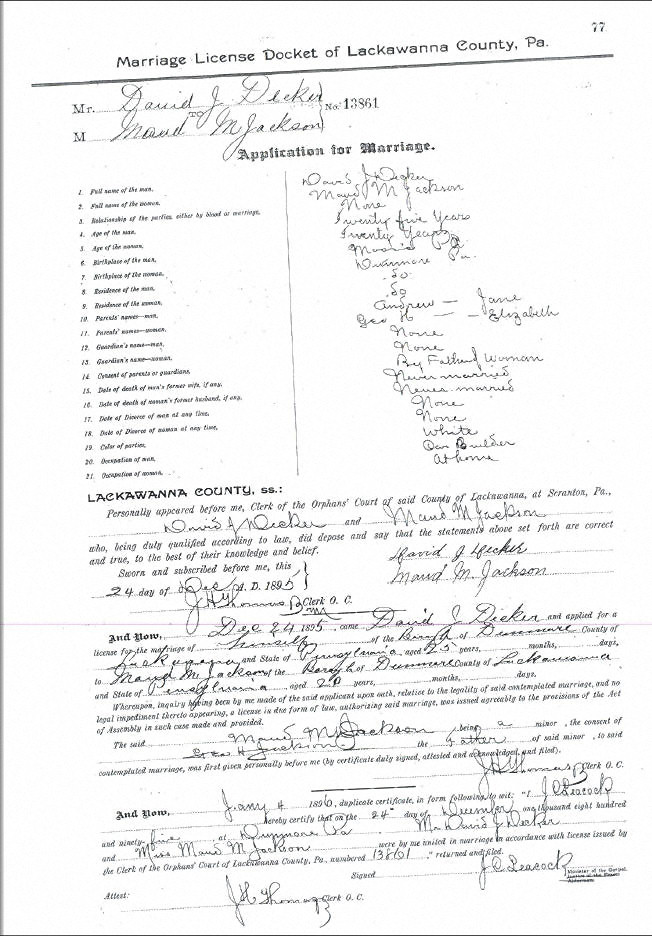 77
Marriage License Docket of Lackawanna County, Pa.
Mr. David J Decker
TO No. 13861
M Maud M Jackson
Application for Marriage.
1. Full name of the man, David J Decker
2. Full name of the woman, Maud M Jackson
3. Relationship of the parties, either by blood or marriage, None
4. Age of the man, Twenty five Years
5. Age of the woman, Twenty Years
6. Birthplace of the man, Pa.
7. Birthplace of the woman, Dunmore Pa.
8. Residence of the man, do
9. Residence of the woman, do
10. Parents' names—man, Andrew — Jane
11. Parents' names—woman, Geo H — — Elizabeth
12. Guardian's name—man, None
13. Guardian's name—woman, None
14. Consent of parents or guardians, By Father of Woman
15. Date of death of man's former wife, if any, Never married
16. Date of death of woman's former husband, if any, Never married
17. Date of Divorce of man at any time, None
18. Date of Divorce of woman at any time, None
19. Color of parties, White
20. Occupation of man, Car Builder
21. Occupation of woman, At home
LACKAWANNA COUNTY, ss.:
Personally appeared before me, Clerk of the Orphans' Court of said County of Lackawanna, at Scranton, Pa.,
David J Decker and Maud M Jackson
who, being duly qualified according to law, did depose and say that the statements above set forth are correct
and true, to the best of their knowledge and belief.
Sworn and subscribed before me, this David J Decker
24 day of Dec A. D. 1895 Maud M. Jackson
J H Thomas Clerk O. C.
And Now, Dec 24 1895, came David J Decker and applied for a
license for the marriage of himself of the Borough of Dunmore County of
Lackawanna and State of Pennsylvania, aged 25 years, months, days,
to Maud M Jackson of the Borough of Dunmore County of Lackawanna
and State of Pennsylvania aged 20 years, months, days.
Whereupon, inquiry having been by me made of the said applicant upon oath, relative to the legality of said contemplated marriage, and no
legal impediment thereto appearing, a license in due form of law, authorizing said marriage, was issued agreeably to the provisions of the Act
of Assembly in such case made and provided.
The said Maud M Jackson being a minor, the consent of
Geo H Jackson the Father of said minor, to said
contemplated marriage, was first given personally before me (by certificate duly signed, attested and acknowledged, and filed).
J H Thomas Clerk O. C.
And Now, Jany 4 1896, duplicate certificate, in form following to wit: "I J C Leacock
hereby certify that on the 24" day of December one thousand eight hundred
and ninety-five at Dunmore Pa Mr David J Decker
and Miss Maud M Jackson were by me united in marriage in accordance with license issued by
the Clerk of the Orphans' Court of Lackawanna County, Pa., numbered 13861 ." returned and filed.
Signed J C Leacock Minister of the Gospel.
Justice of the Peace
Alderman.
Attest: J H Thomas Clerk O. C.